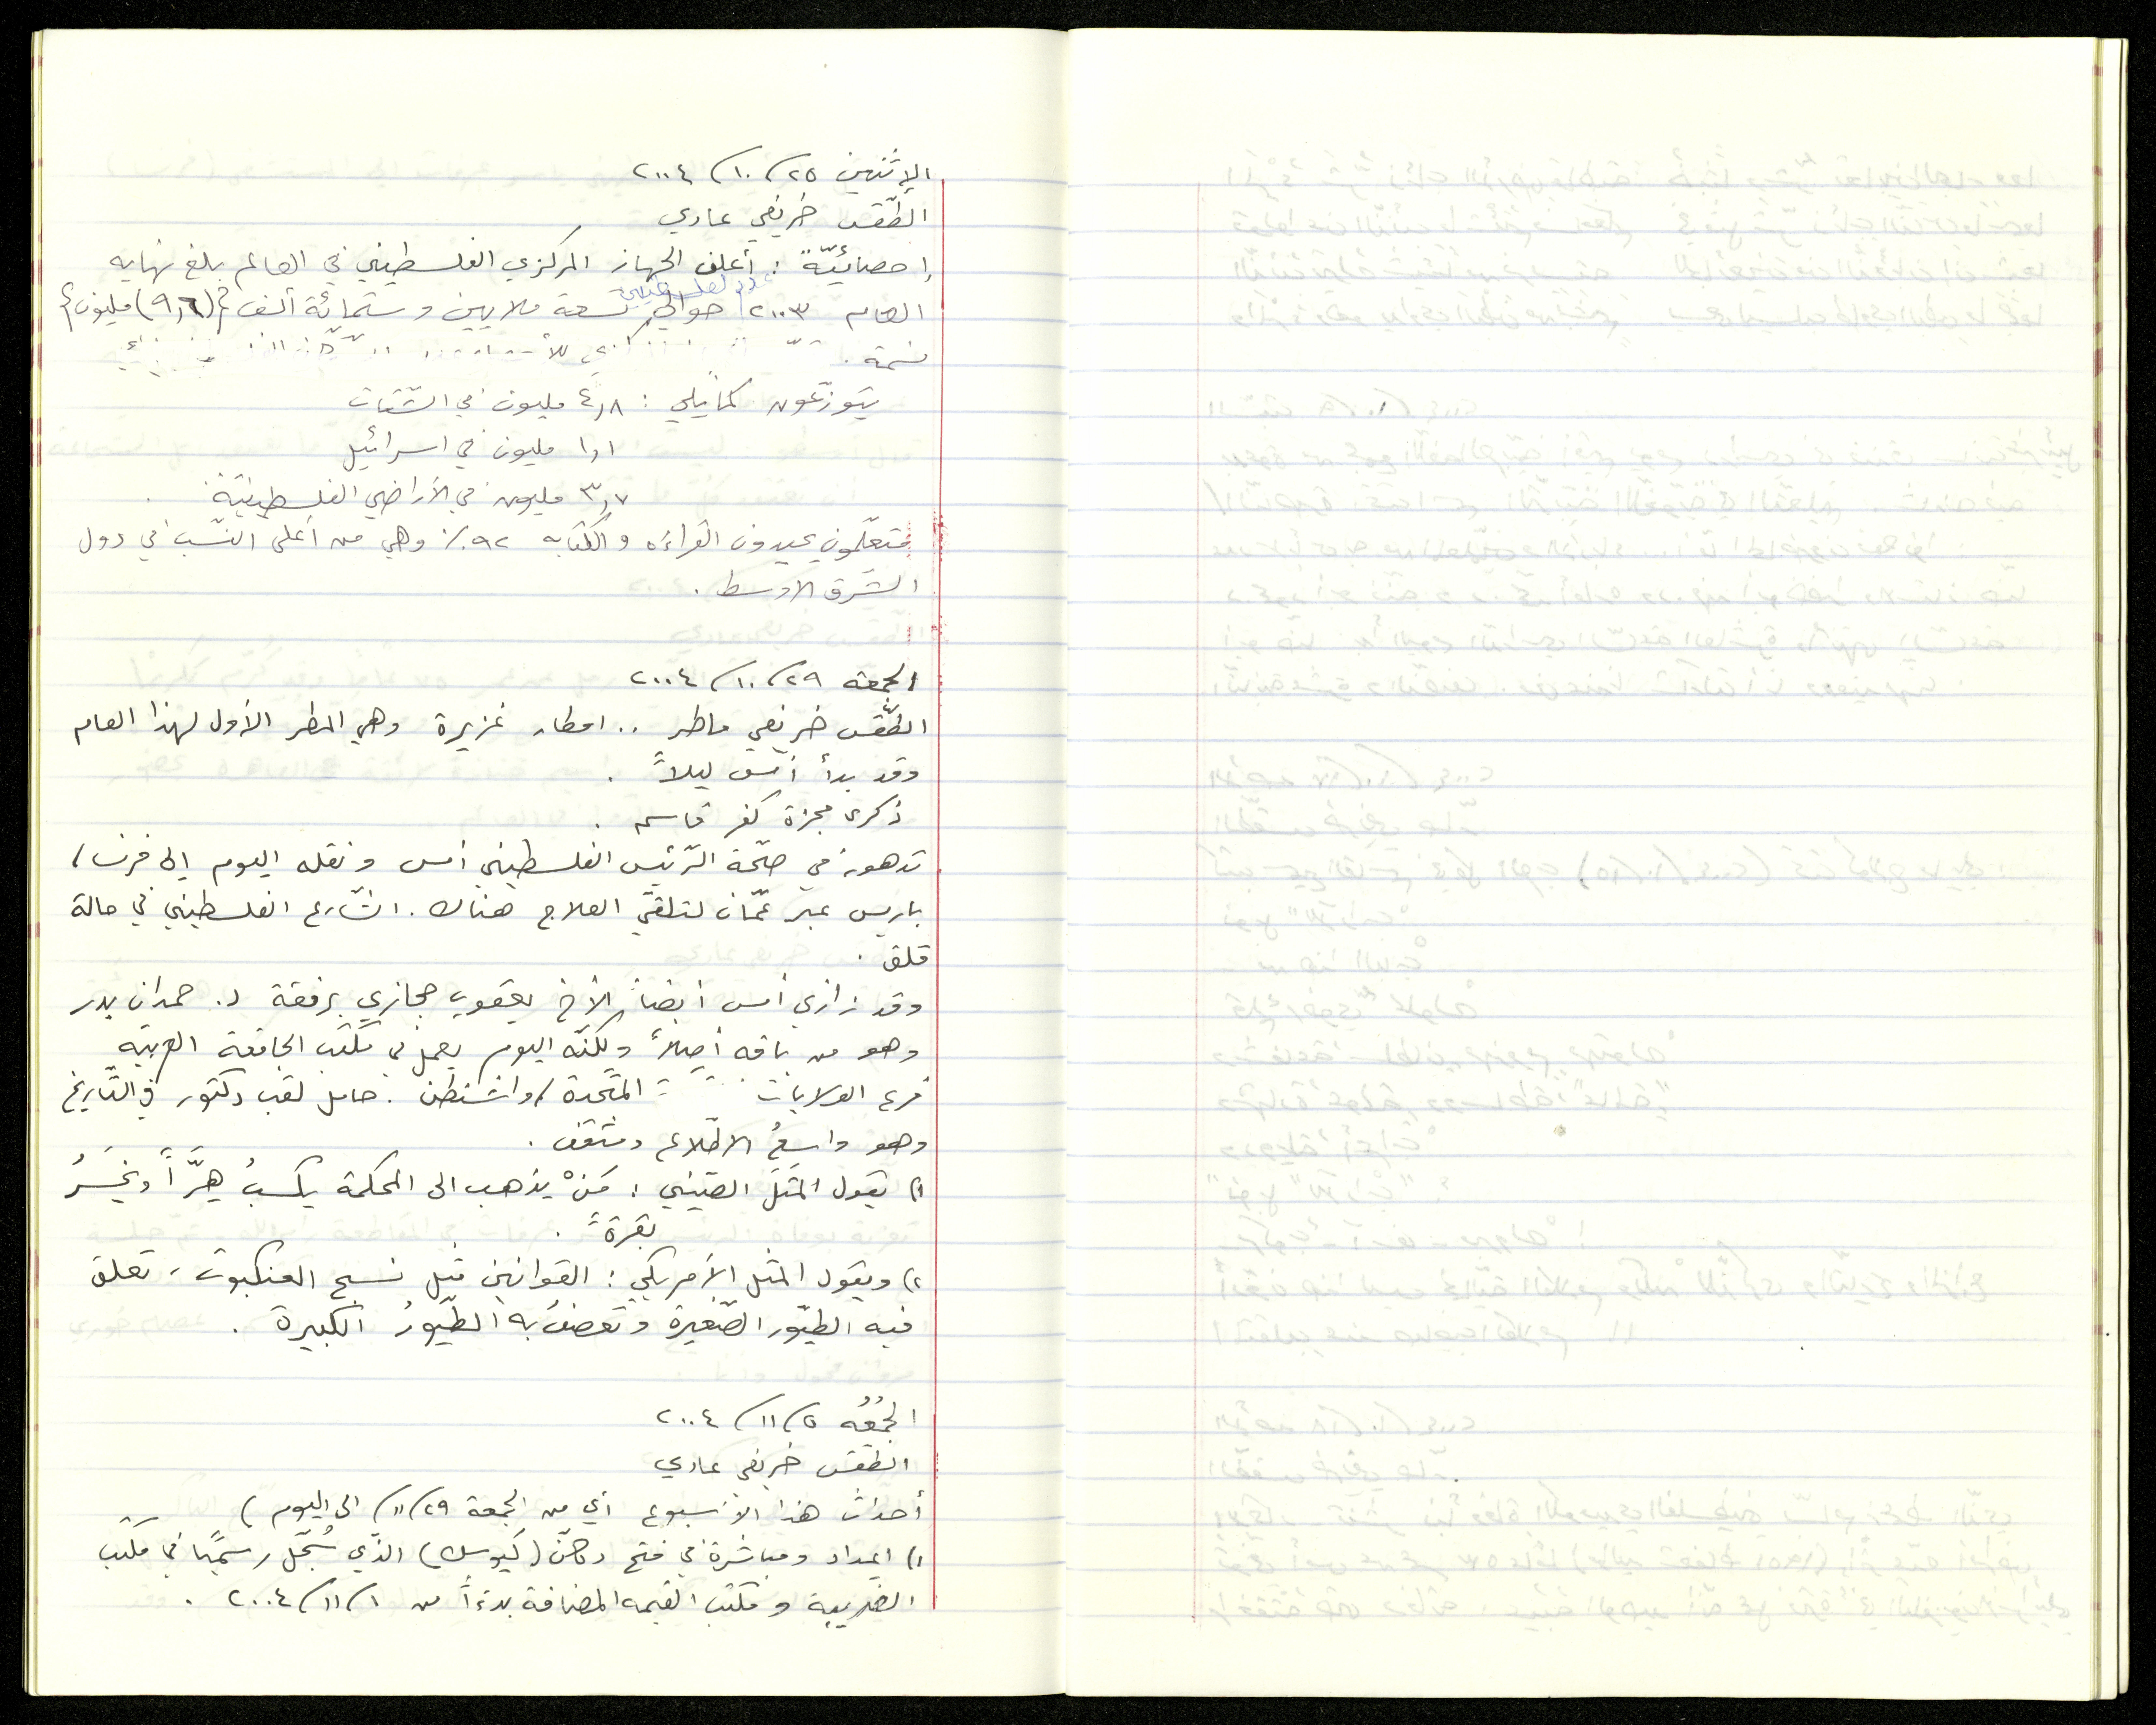 الإثنين ٢٥/ ١٠/ ٢٠٠٤
الطّقس خريفي عادي
إحصائيّة : أعلن الجهاز المركزي الفلسطيني في العالم بلغ نهايه
عدد الفلسطينيين
العام ٢٠٠٣ حوالي تسعة ملايين وستمائة ألف (٩,٦) مليون
نسمة .
يتوزّعون كما يلي : ٤,٨ مليون في الشّتات
١,١ مليون في اسرائيل
٣,٧ مليون في الأراضي الفلسطينيّة .
متعلّمون يجيدون القراءه والكتابه ٩٢٪ وهي من أعلى النّسب في دول
الشّرق الاوسط .
الجمعه ٢٩/ ١٠/ ٢٠٠٤
الطّقس خريفي ماطر .. امطار غزيرة وهي المطر الأول لهذا العام
وقد بدأ أمس ليلاً .
ذكرى مجزة كفر قاسم .
تدهور في صحّة الرّئيس الفلسطيني أمس ونقله اليوم إلى فرنسا/
باريس عبر عمّان لتلقّي العلاج هناك . الشّارع الفلسطيني في حالة
قلق .
وقد زارني أمس أيضاً الأخ يعقوب حجازي برفقة د. حمدان بدر
وهو من باقه أصلاً ولكنّه اليوم يعمل في مكتب الجامعة العربيّه
فرع الولايات المتّحدة/واشنطن . حامل لقب دكتور في التّاريخ
وهو واسعُ الاطّلاع ومثقف .
١) يقول المثل الصّيني : مَنْ يذهب الى المحكمة يكسبُ هِرّاً ويَخْسَرُ
بقرةً .
٢) ويقول المثل الأمريكي : القوانين مثل نسيج العنكبوت ، تعلق
فيه الطيّور الصّغيرة وتعصفُ به الطّيورُ الكبيرة .
الجُمُعُه ٥/ ١١/ ٢٠٠٤
الطقس خريفي عادي
أحداث هذا الأسبوع أي من الجمعة ٢٩/ ١١/ الى اليوم )
١) إعداد ومباشرة في فتح دكّان (كيوسك) الذّي سُجّل رسميّا في مكتب
الضريبه ومكتب القيمه المضافة بدءاً من ١/ ١١/ ٢٠٠٤ .